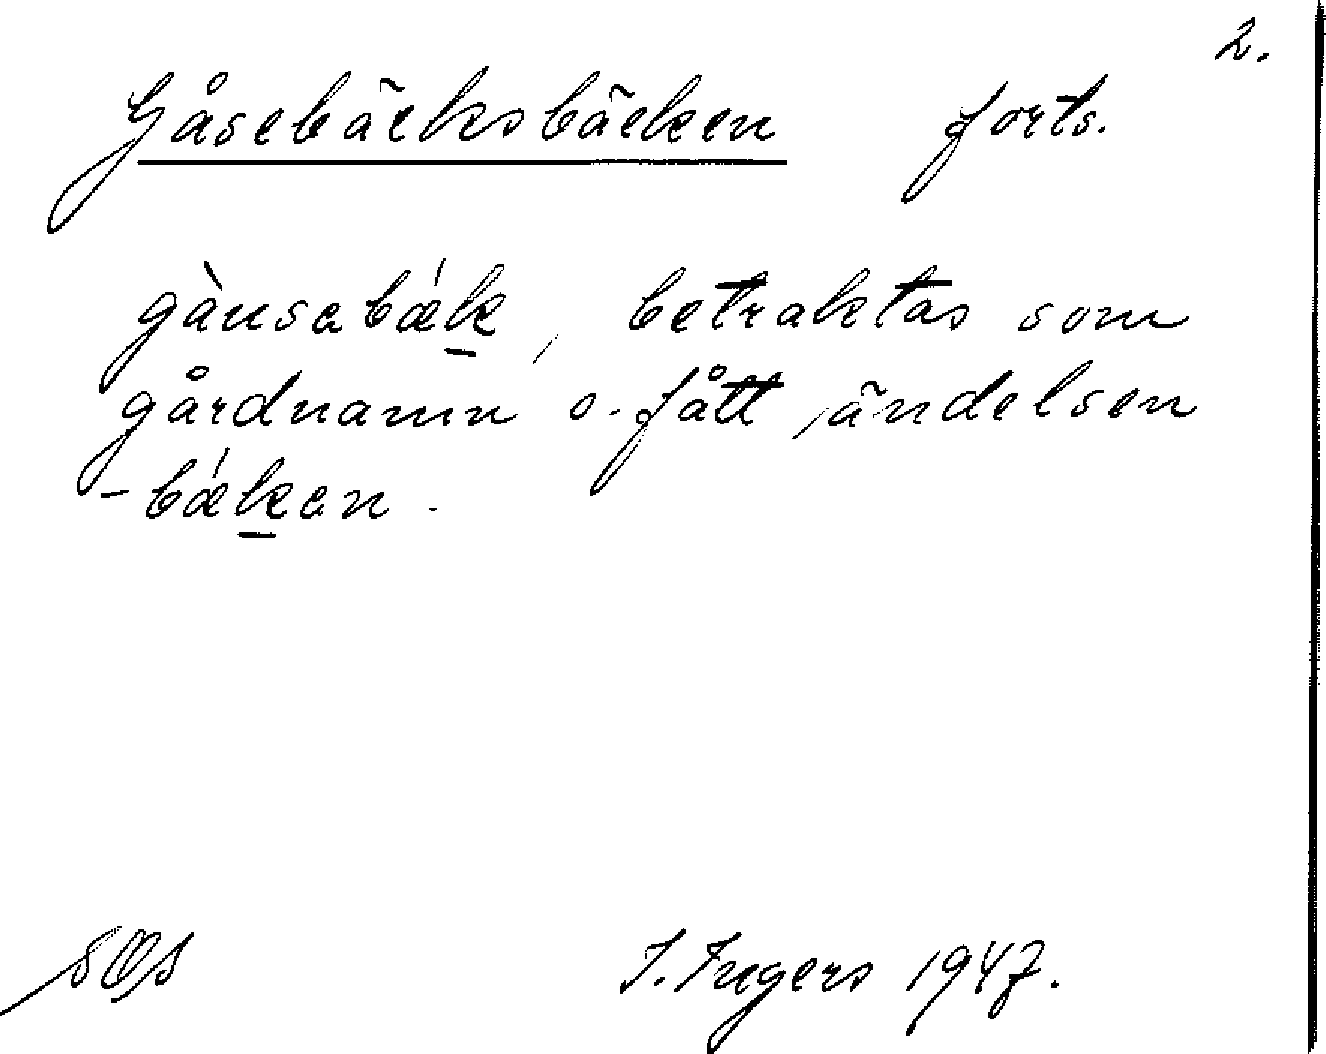 2.
Gåsebäcksbäcken forts.
gàusabǽk, betraktas som
gårdnamn o. fått ändelsen
-bǽkan.
I. Ingers 1947.